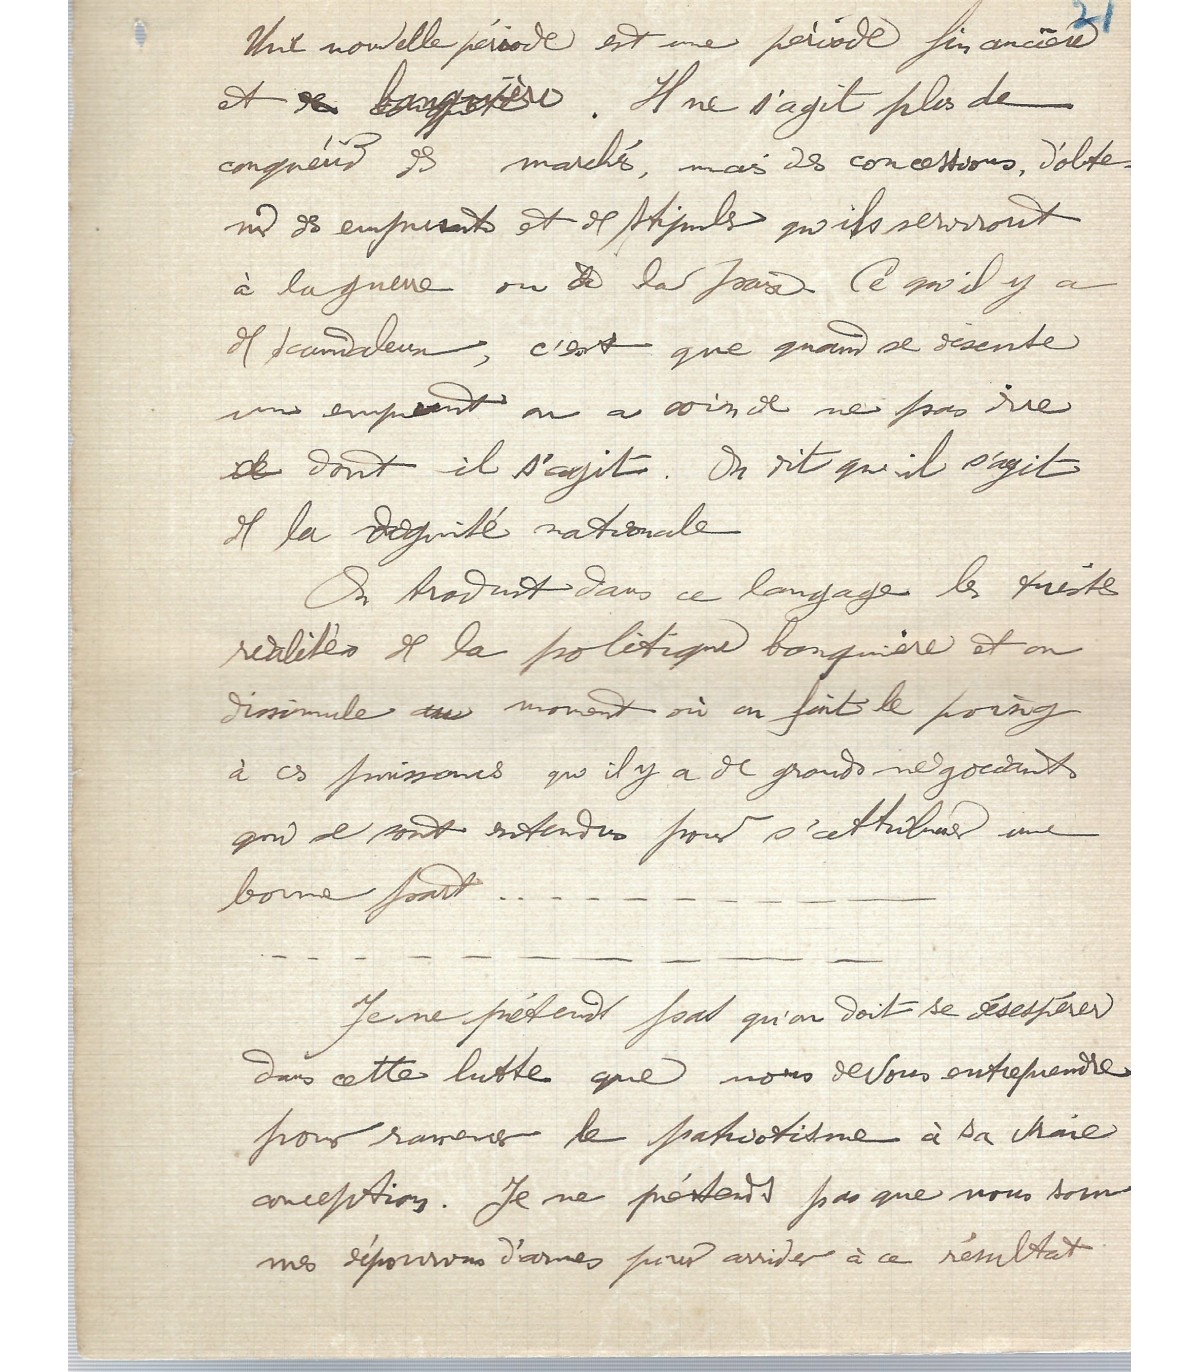 21
Une nouvelle période est une période financière
et de banquière. Il ne s'agit plus de
conquérir des marchés, mais des concessions, d'obte-
nir des emprunts et de stipuler qu'ils serviront
à la guerre ou de la paix. Ce qu'il y a
de scandaleux, c'est que quand se discute
un emprunt on a soin de ne pas dire
de dont il s'agit. On dit qu'il s'agit
de la dignité nationale
On traduit dans ce langage les tristes
réalités de la politique banquière et on
dissimule au moment où on fait le poing
à ces puissances qu'il y a de grands négociants
qui se sont entendus pour s'attribuer une
bonne part . . . - - - - - - - - - -
- - - - - - - - - - -
Je ne prétends pas qu'on doit se désespérer
dans cette lutte que nous devons entreprendre
pour ramener le patriotisme à sa vraie
conception. Je ne prétends pas que nous som
mes dépourvus d'armes pour arriver à ce résultat